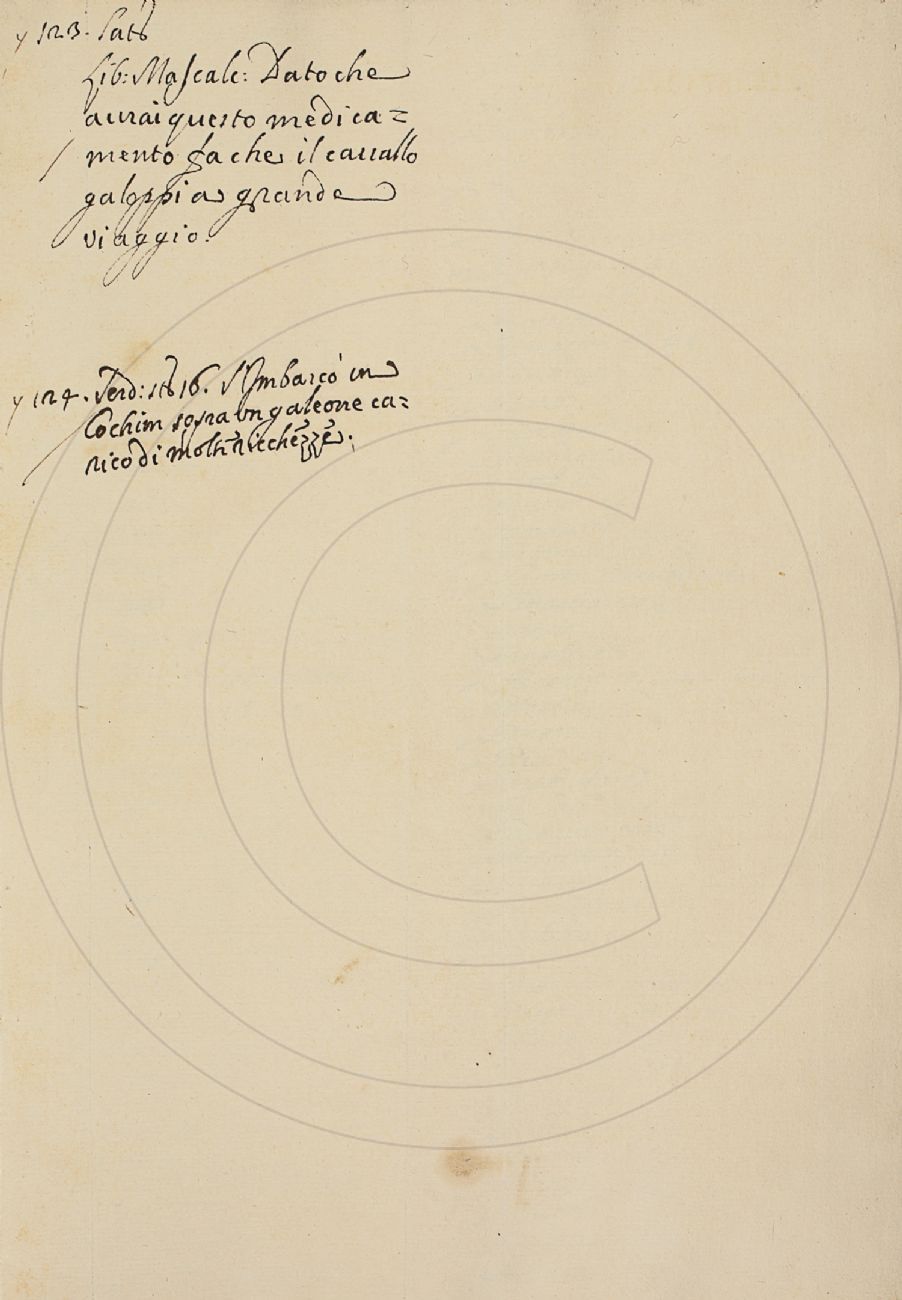 y 123.
Lib: Mascalc: Dato che
aurai questo medica=
mento fa che il cauallo
galoppi a grande
viaggio.
y 124. S'Imbarcò in
Cochim sopra vn galeone ca=
rico di molte ricchezze.